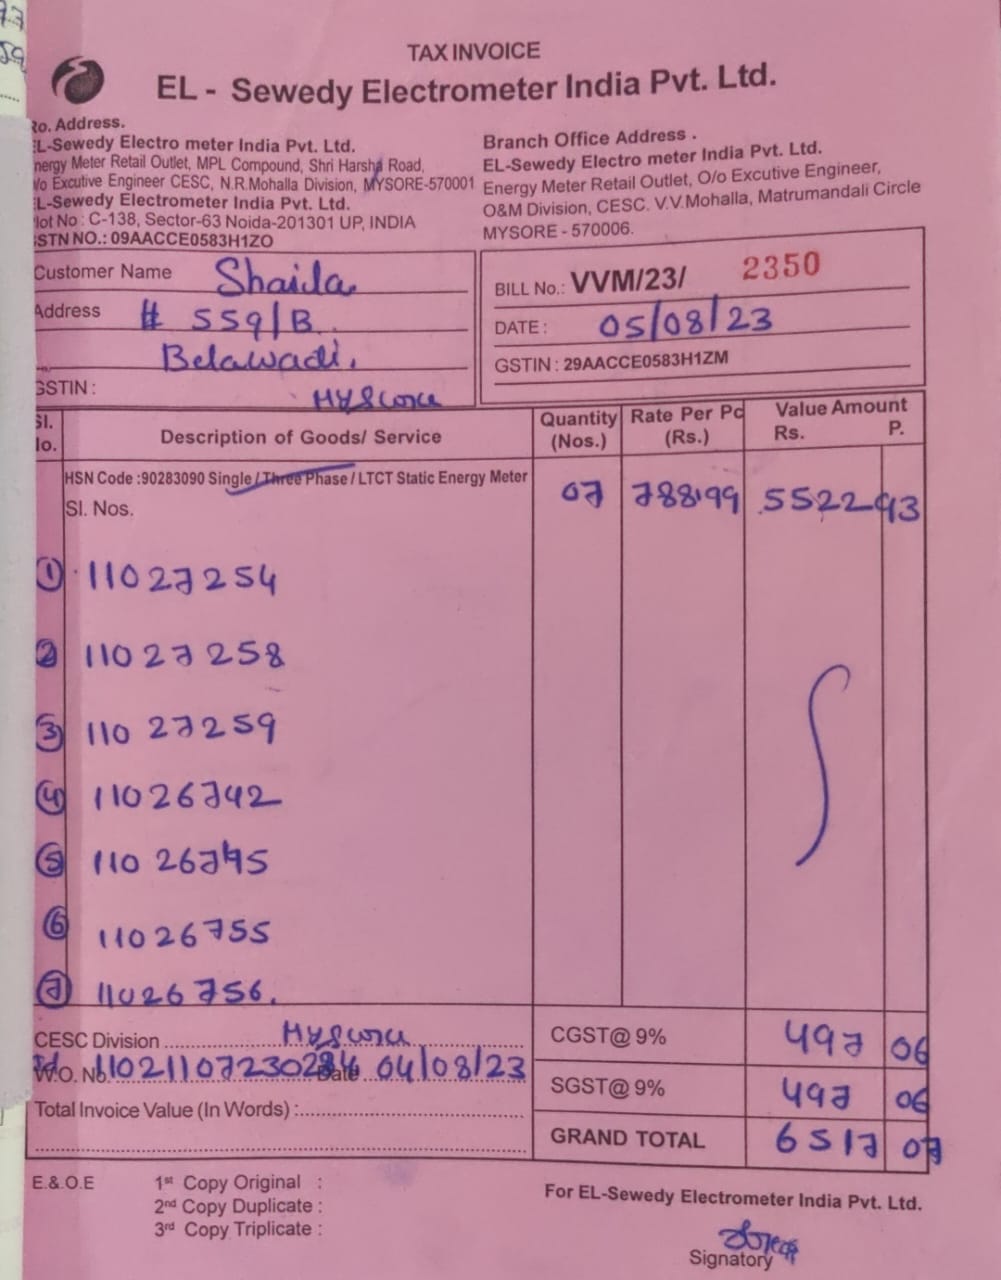 TAX INVOICE
EL - Sewedy Electrometer India Pvt. Ltd.
Ro. Address.
EL-Sewedy Electro meter India Pvt. Ltd.
nergy Meter Retail Outlet, MPL Compound, Shri Harsha Road,
/o Excutive Engineer CESC, N.R.Mohalla Division, MYSORE-570001
EL-Sewedy Electrometer India Pvt. Ltd.
lot No : C-138, Sector-63 Noida-201301 UP, INDIA
GSTN NO.: 09AACCE0583H1ZO
Branch Office Address .
EL-Sewedy Electro meter India Pvt. Ltd.
Energy Meter Retail Outlet, O/o Excutive Engineer,
O&M Division, CESC. V.V.Mohalla, Matrumandali Circle
MYSORE - 570006.
Customer Name Shaila
Address # 559/B
Belawadi.
GSTIN :
Mysore
BILL No.: VVM/23/ 2350
DATE : 05/08/23
GSTIN : 29AACCE0583H1ZM
Sl. No. Description of Goods/ Service Quantity (Nos.) Rate Per Pc (Rs.) Value Amount Rs. P.
HSN Code :90283090 Single / Three Phase / LTCT Static Energy Meter 07 788.99 5522 93
Sl. Nos.
1 11027254
2 11027258
3 11027259
4 11026742
5 11026745
6 11026755
7 11026756.
CESC Division Mysore
W.O. No. Date 04/08/23
Total Invoice Value (In Words) :
CGST@ 9% 497 06
SGST@ 9% 497 06
GRAND TOTAL 6517 07
E.&.O.E 1st Copy Original :
2nd Copy Duplicate :
3rd Copy Triplicate :
For EL-Sewedy Electrometer India Pvt. Ltd.
Signatory